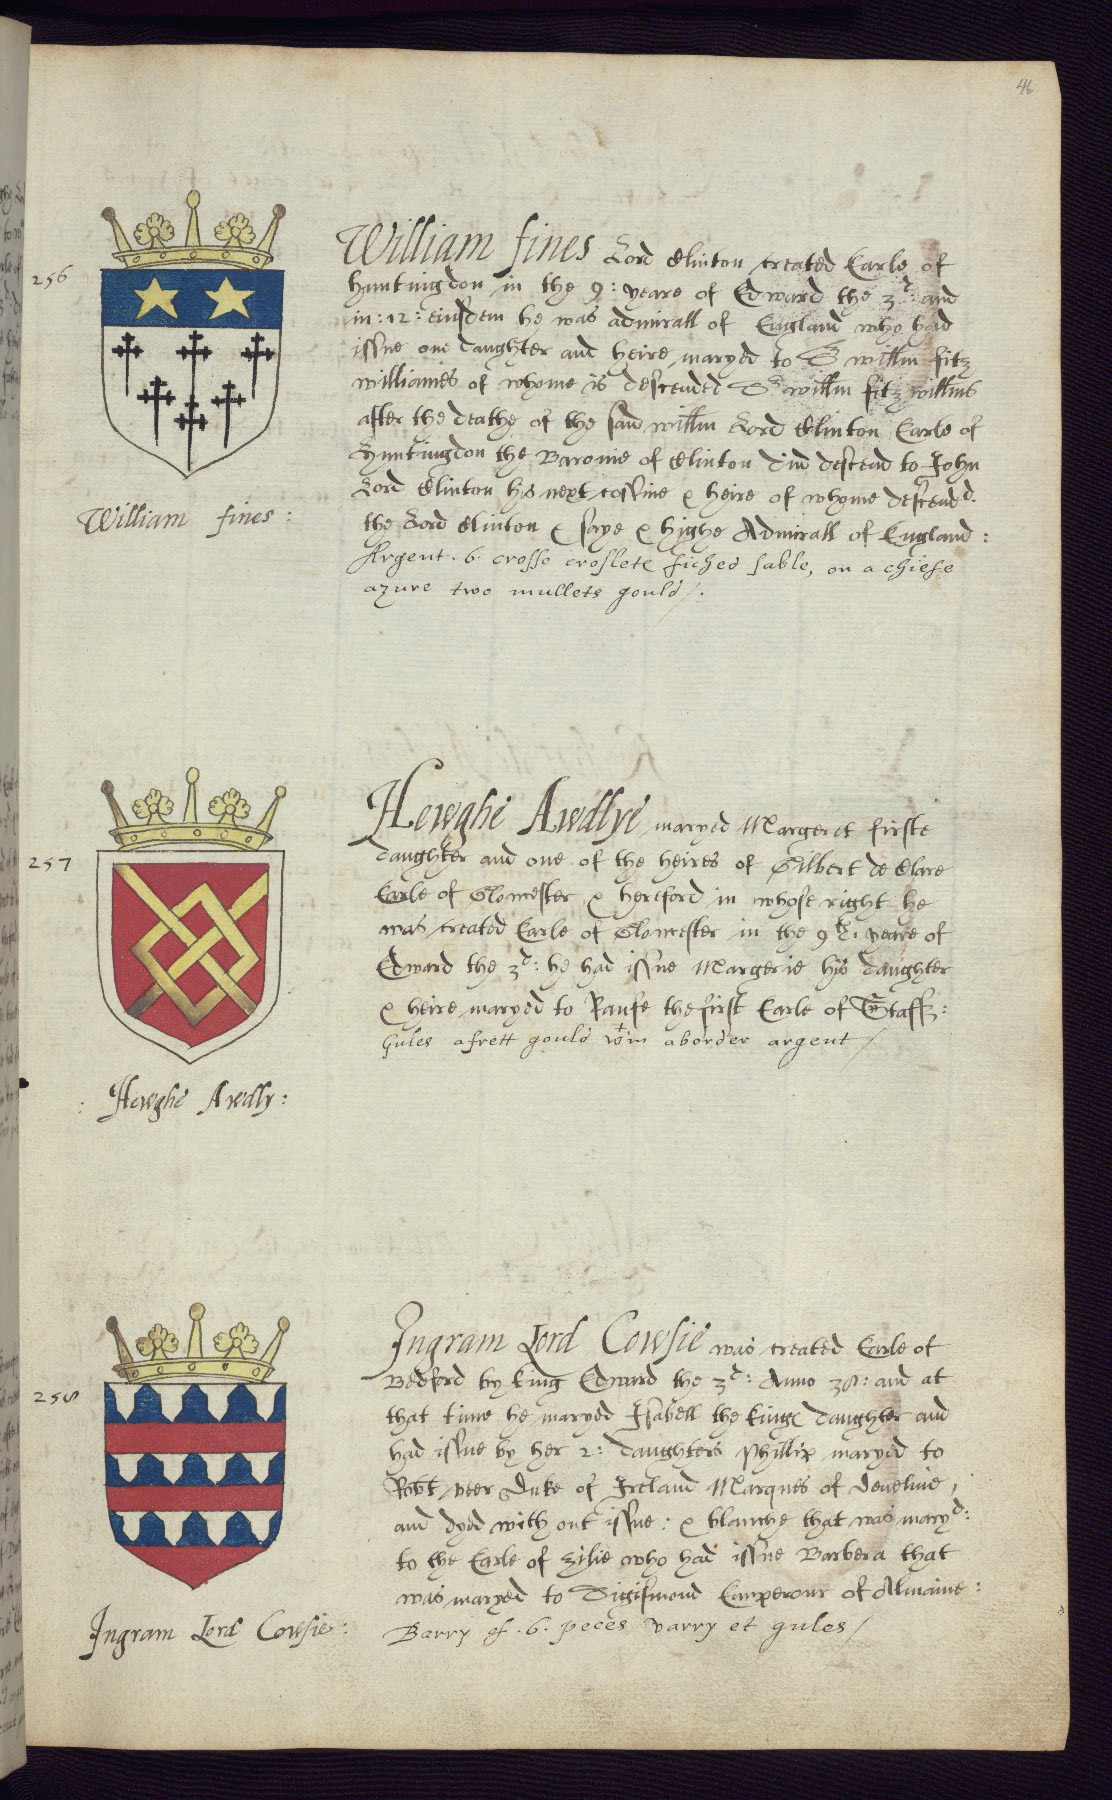 46
256
William fines Lord Clinton created Earle of
Huntingdon in the 9: yeare of Edward the 3d: and
in: 12: eiusdem he was admirall of England who had
issue one daughter and heire maryed to Sr willm fitz
williames of whome is descended Sr willm fitz willms
after the deathe of the said willm Lord Clinton Earle of
Huntingdon the Baronie of Clinton did descend to John
Lord Clinton his next cossine & heire of whome descendd.
the Lord Clinton & saye & highe Admirall of England:
Argent. 6. crosse croslete fiched sable, on a chiefe
azure two mullets gould/.
William fines:
257
Hewghe Awdlye maryed Margeret firste
daughter and one of the heires of Gilbert de Clare
Earle of Glocester & hereford in whose right he
was created Earle of Glocester in the 9th: yeare of
Edward the 3d: he had issue Margerie his daughter
& heire maryed to Raufe the first Earle of Staff:
Gules a frett gould wtin a border argent/
: Hewghe Awdly:
258
Ingram Lord Cowsie was created Earle of
Bedford by King Edward the 3d: Anno 38: and at
that time he maryed Isabell the kinge daughter and
had issue by her 2: daughters Phillix maryed to
Robt veer Duke of Ireland Marques of develine,
and dyed with out issue: & blanche that was maryd:
to the Earle of Silie who had issue Barbera that
was maryed to Sigismond Emperour of Almaine:
Barry of .6. peces varry et gules/
Ingram Lord Cowsie: